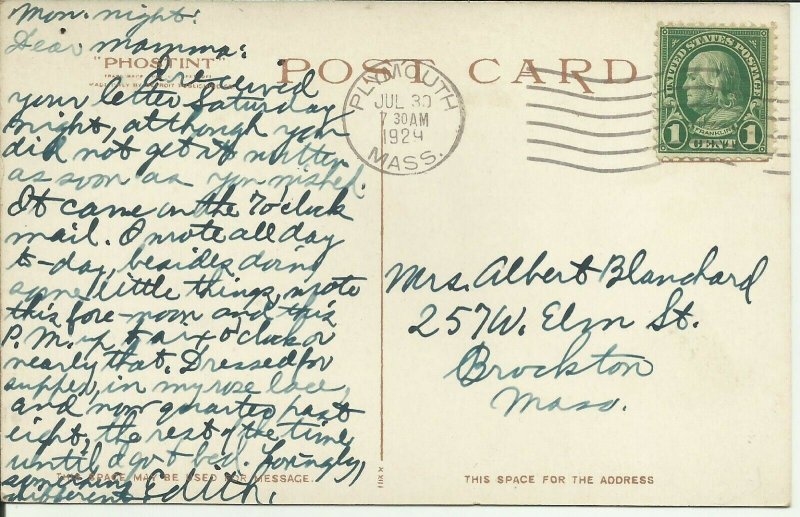 Mon. night:
Dear mamma:
"PHOSTINT"
POST CARD
I received
your letter Saturday
night, although you
did not get it written
as soon as you wished.
It came in the 7 o'clock
mail. I wrote all day
to-day, besides doing
some little things, wrote
this fore-noon and this
P. M. up to six o'clock or
nearly that. Dressed for
supper, in my rose lace,
and now quarter past
eight, the rest of the time
until I go to bed. Lovingly,
something
different Edith.
THIS SPACE MAY BE USED FOR MESSAGE.
PLYMOUTH
JUL 30
7 30 AM
1929
MASS.
UNITED STATES POSTAGE
FRANKLIN
1 CENT 1
Mrs. Albert Blanchard
257 W. Elm St.
Brockton
Mass.
THIS SPACE FOR THE ADDRESS